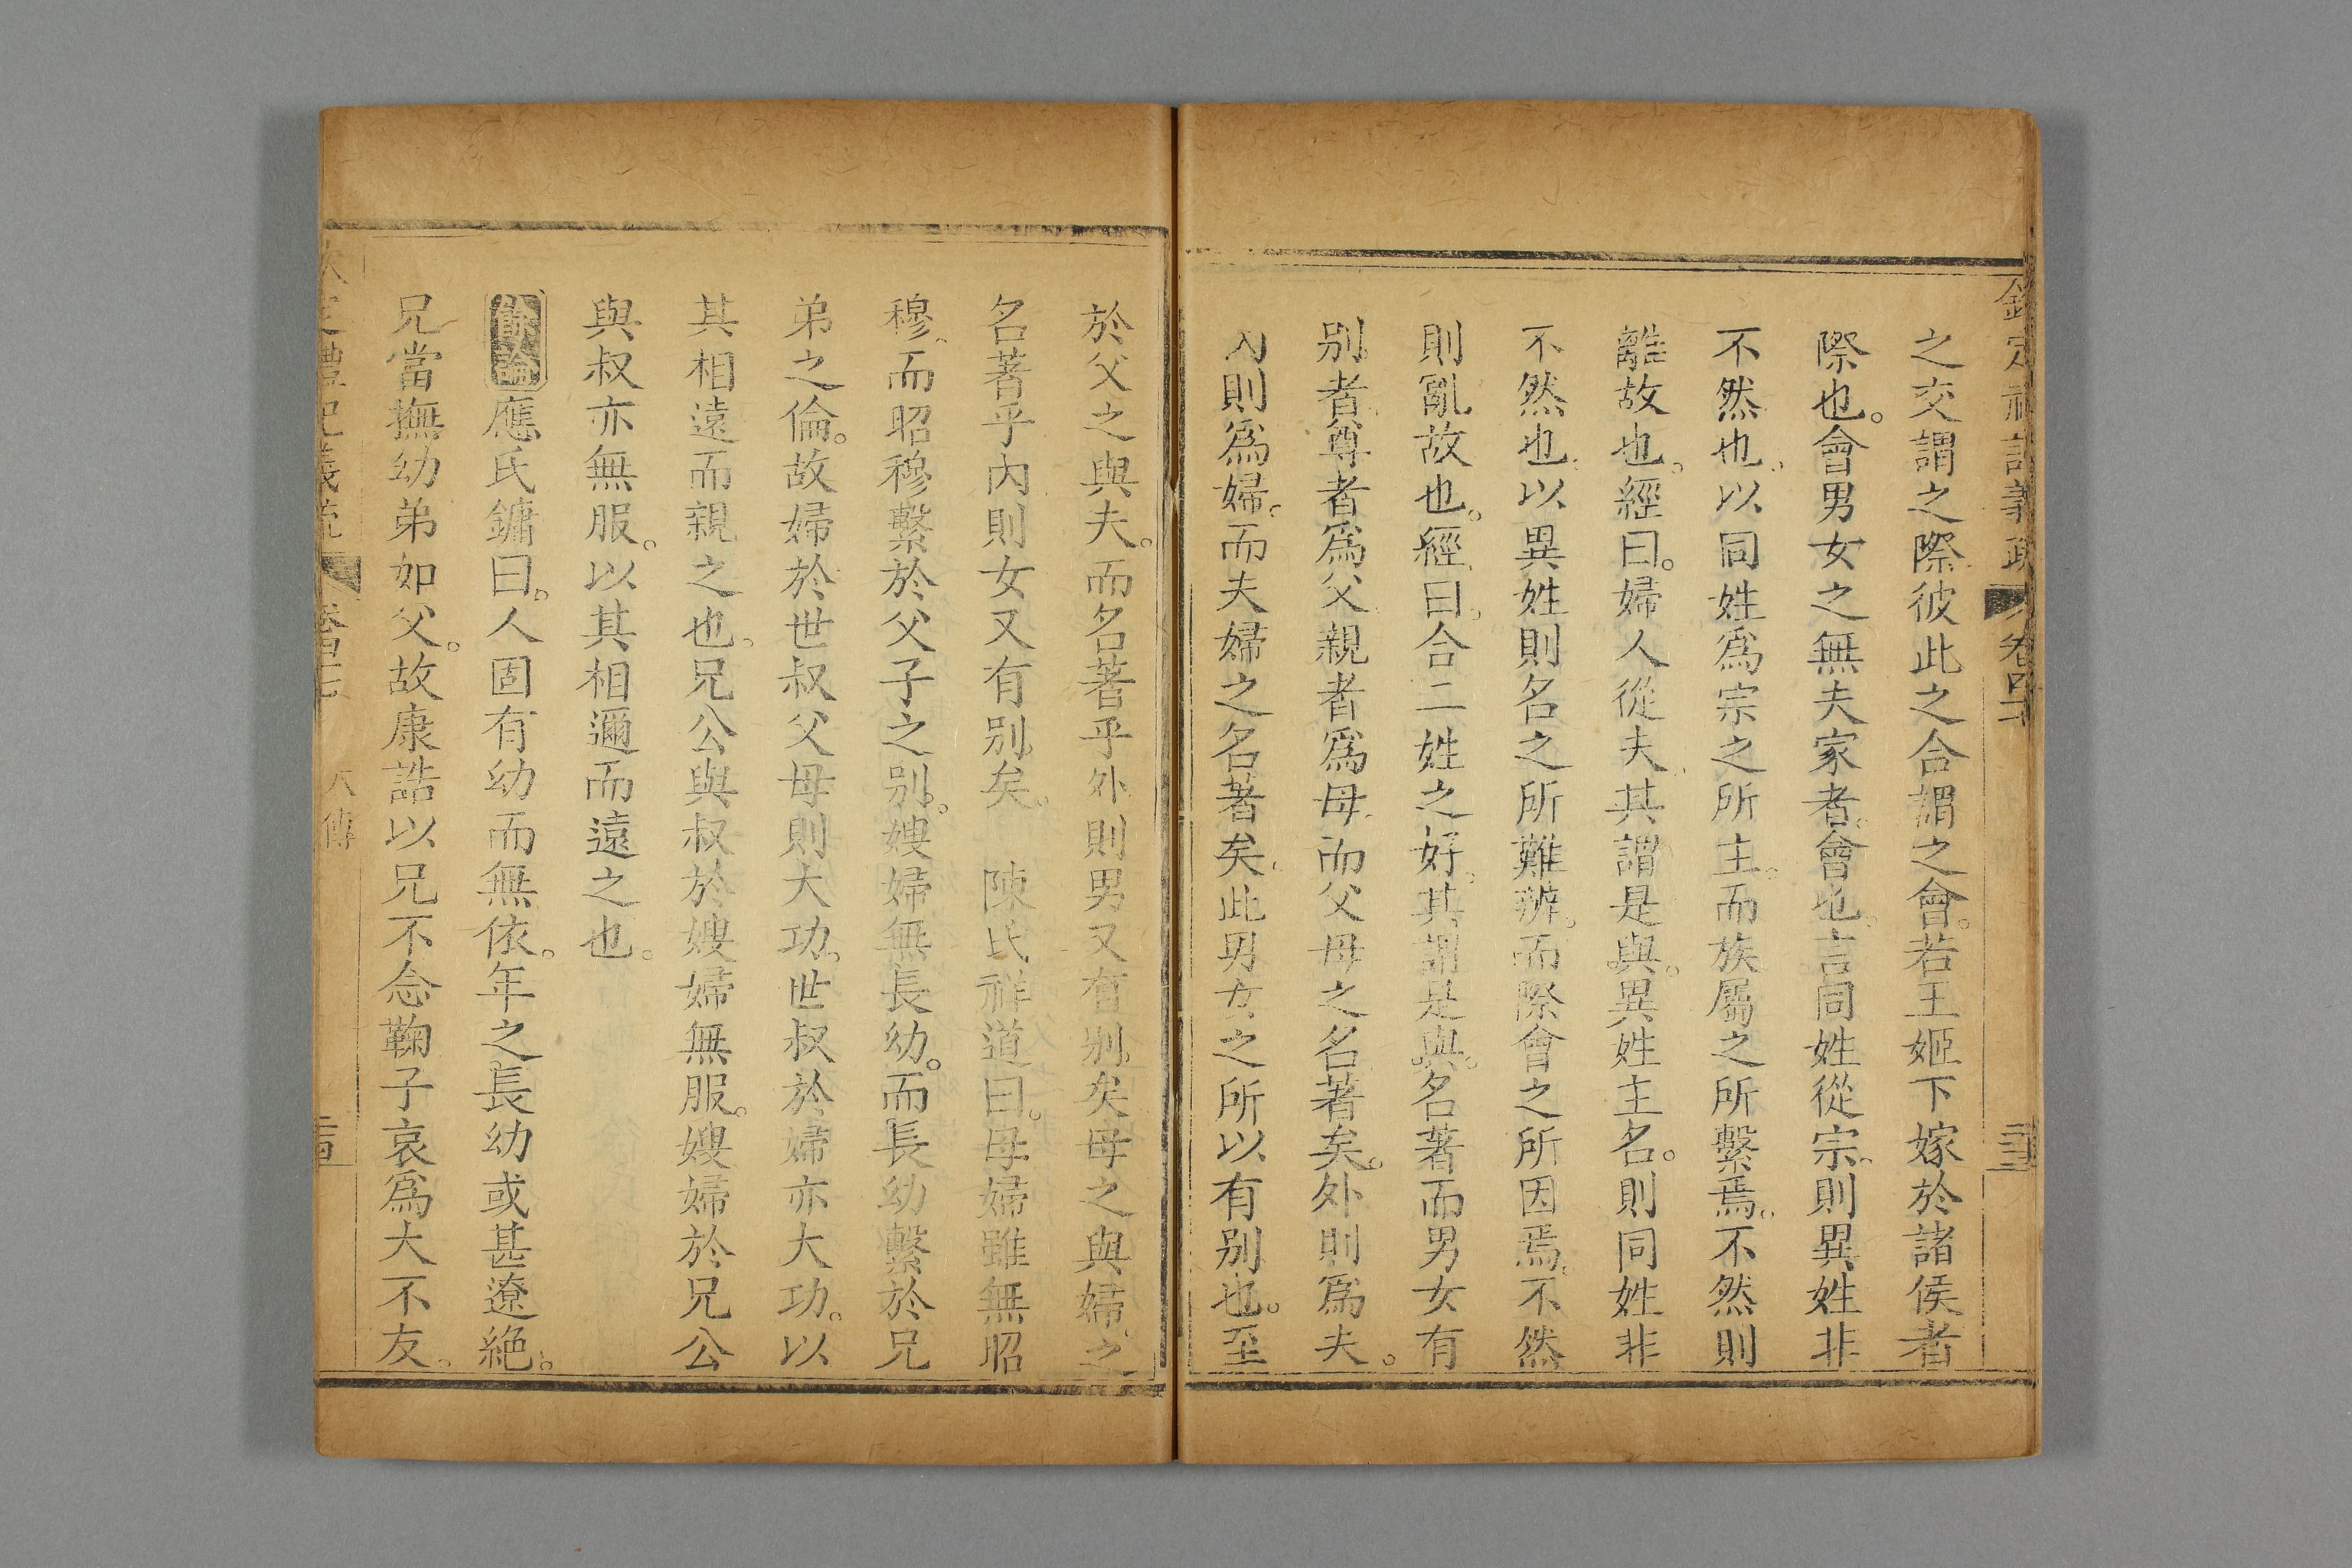 欽定禮記義疏 卷四十七
之交謂之際彼此之合謂之會。若王姬下嫁於諸侯者
際也。會男女之無夫家者。會也。言同姓從宗。則異姓非
不然也。以同姓爲宗之所主。而族屬之所繫焉。不然則
離故也。經曰。婦人從夫。其謂是與。異姓主名。則同姓非
不然也。以異姓則名之所難辨。而際會之所因焉。不然
則亂故也。經曰。合二姓之好。其謂是與。名著而男女有
別者。尊者爲父。親者爲母。而父母之名著矣。外則爲夫。
內則爲婦。而夫婦之名著矣。此男女之所以有別也。至
於父之與夫。而名著乎外則男又有別矣母之與婦之
名著乎內則女又有別矣。 陳氏祥道曰。母婦雖無昭
穆。而昭穆繫於父子之別。嫂婦無長幼。而長幼繫於兄
弟之倫。故婦於世叔父母則大功。世叔於婦亦大功。以
其相遠而親之也。兄公與叔於嫂婦無服。嫂婦於兄公
與叔亦無服。以其相邇而遠之也。
餘論應氏鏞曰。人固有幼而無依。年之長幼或甚遼絕。
兄當撫幼弟如父。故康誥以兄不念鞠子哀爲大不友。
禮記義疏 卷四十七 大傳